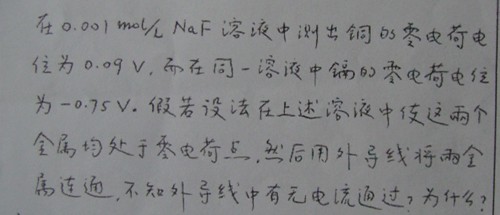 在0.001 mol/L NaF溶液中测出铜的零电荷电
位为0.09 V，而在同一溶液中镉的零电荷电位
为-0.75 V。假若设法在上述溶液中使这两个
金属均处于零电荷点，然后用外导线将两金
属连通，不知外导线中有无电流通过？为什么？